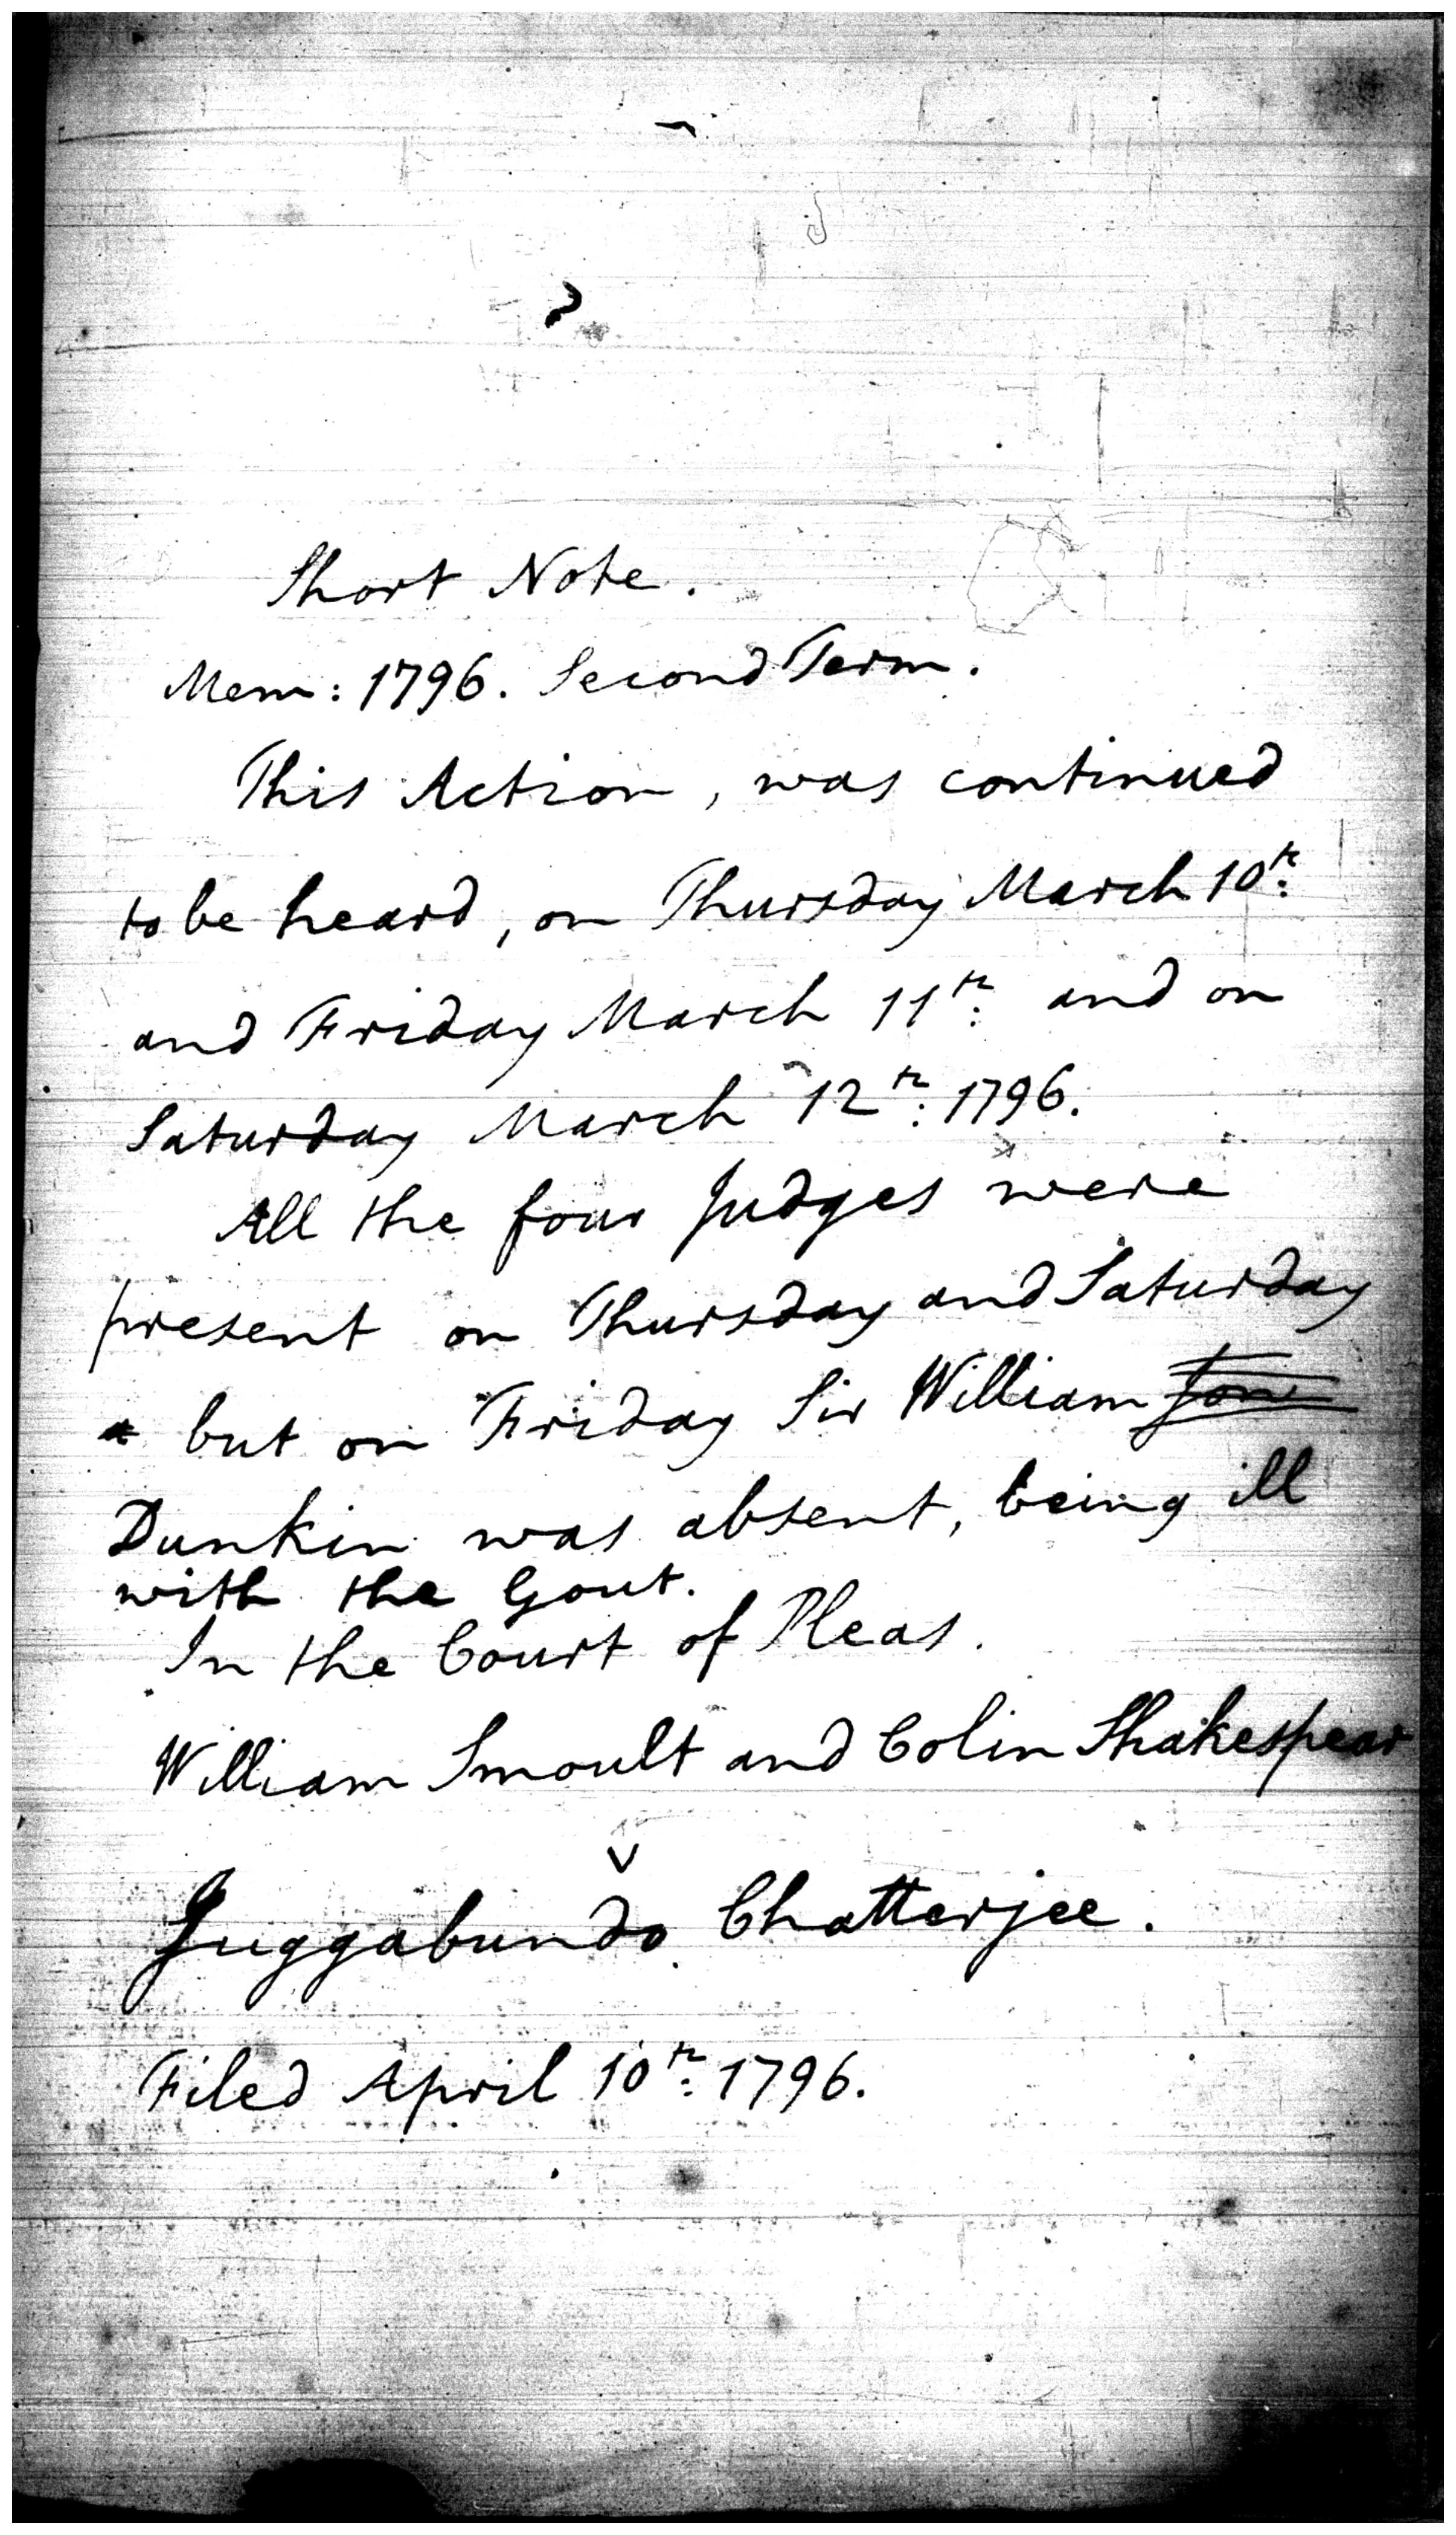 Short Note.
Mem: 1796. Second Term.
This Action, was continued
to be heard, on Thursday March 10th:
and Friday March 11th: and on
Saturday March 12th: 1796.
All the four Judges were
present on Thursday and Saturday
but on Friday Sir William Jone
Dunkin was absent, being ill
with the Gout.
In the Court of Pleas.
William Smoult and Colin Shakespear
v
Juggabundo Chatterjee.
Filed April 10th: 1796.